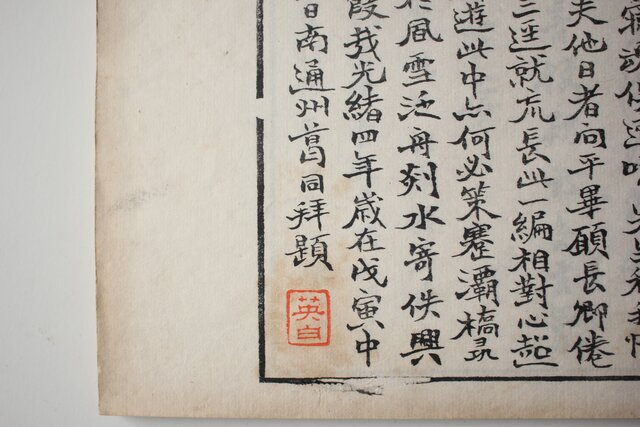 夫他日者向平畢願長卿倦
三逕就荒長此一編相對心超
遊此中六何必策蹇灞橋尋
風雪泛舟剡水寄佚興
段哉光緒四年歲在戊寅中
日南通州葛同拜題
英白